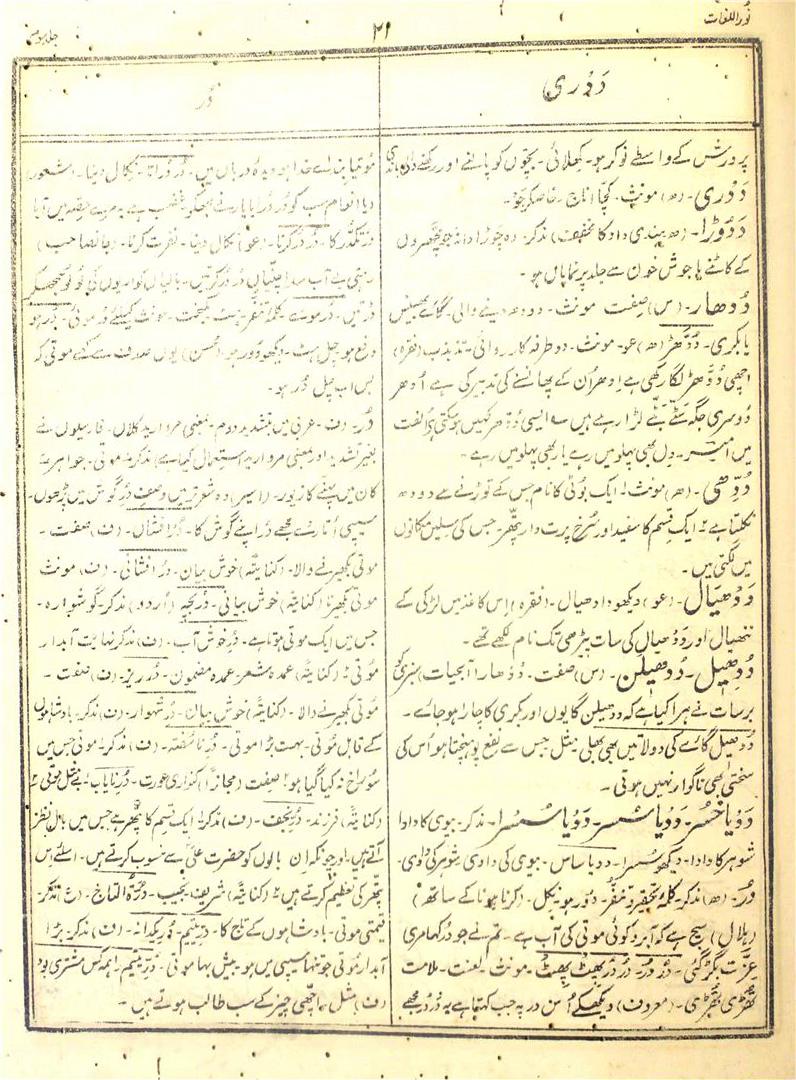 نور اللغات
۲۱
جلد سوم
دَدْرِی
دُر
پرورش کے واسطے نوکر ہو۔ کھلائی۔ بچّوں کو پالنے اور رکھنے والی باندی
دَدْری۔ (ھ) مونث۔ کچّا اناج۔ خاصکر جَو۔
دَدَوڑا۔ (ھ ہندی داد کا مخفف) مذکر۔ وہ چَوڑا دانہ جو مچھروں
کے کاٹنے یا جوش خون سے جلد پر نمایاں ہو۔
دُودھار۔ (س) صفت مونث۔ دودھ دینے والی۔ گائے بھینس
یا بکری۔ دُدَھڑ (ھ) عو۔ مونث۔ دو طرفہ کارروائی۔ تذبذب (فقرہ)
اچھی دُدَھڑ لگا رکھی ہے اِدھر اُن کے پھانسنے کی تدبیر کی ہے اُدھر
دُوسری جگہ سَٹّے بَٹّے لڑا رہے ہیں ؎ ایسی دُدھر کہیں ہو سکتی ہے اُلفت
میں امیر۔ دِل بھی پہلو میں رہے یار بھی پہلو میں رہے۔
دُدّھی۔ (ھ) مونث ۱ ایک بُوٹی کا نام جس کے توڑنے سے دودھ
نکلتا ہے ۲ ایک قسم کا سفید اور سُرخ پرت دار پتھر جس کی سِلیں مکانوں
میں لگتی ہیں۔
دَدْھیال۔ (عو) دیکھو دادھیال۔ (فقرہ) اِس کاغذ میں لڑکی کے
ننھیال اور دَدھیال کی سات پیڑھی تک نام لکھے تھے۔
دُدھیل۔ دُدھیلن۔ (س) صفت۔ دُدھار (آبحیات) سبزی کو
برسات نے ہرا کیا ہے کہ دُدھیلن گایوں اور بکری کا چارا ہو جائے۔
دُدھیل گائے کی دو لاتیں بھی بھلی۔ مثل جس سے نفع پہنچتا ہو اُس کی
سختی بھی ناگوار نہیں ہوتی۔
دَدیا خُسُر۔ دَدیا سُسر۔ دَدیا سُسرا۔ مذکر۔ بیوی کا دادا
شوہر کا دادا۔ دیکھو سُسرا۔ ددیا ساس۔ بیوی کی دادی شوہر کی دادی۔
دُر۔ (ھ) مذکر۔ کلمۂ تحقیر و تنفّر۔ دُور ہو نکل۔ (کرنا ہونا کے ساتھ)
(ہلال) سچ ہے کہ آبرو کوئی موتی کی آب ہے۔ تم نے جو دُر کہا مری
عزّت بگڑ گئی۔ دُر دُر۔ دُر دُر پھِٹ پھِٹ۔ مونث۔ لعنت۔ ملامت
تھُڑی تھُڑی۔ (معروف) دیکھکے اُس در پہ جب کہتا ہے یہ دُر دُر مجھے
مُوتیا بندا ے خدا ہو دیدۂ درباں میں۔ دُر دُرانا۔ نکال دینا۔ (شعور)
دیا انعام سب کو دُر دُرایا یار نے مجھکو غضب ہے یہ مرے حصّہ میں آیا
دُر دُر کرنا۔ (عو) نکال دینا۔ نفرت کرنا۔ (جانصاحب)
دفع ہو چل ہٹ۔ دیکھو دُور ہو (محسن) یوں صدف سے کہے موتی کہ
بس اب چل دُر ہو۔
دُر۔ (ف۔ عربی میں بتشدید دوم۔ بمعنی مروارید کلاں۔ فارسیوں نے
بغیر تشدید اور بمعنی مروارید استعمال کیا ہے) مذکر ۱ موتی۔ جواہر ۲
کان میں پہننے کا زیور۔ (اسیر) وہ شعر ترمیں وصف دُرِ گوش میں پڑھوں۔
سیپی اُتارے مجھے دُر اپنے گوش کا۔ دُر افشاں۔ (ف) صفت۔
موتی بکھیرنے والا۔ (کنایتہً) خوش بیان۔ دُر افشانی۔ (ف) مونث
موتی بکھیرنا (کنایتہً) خوش بیانی۔ دُر بچہ (اُردو) مذکر۔ گوشوارہ۔
جس میں ایک موتی ہوتا ہے۔ دُرِ خوش آب۔ (ف) مذکر نہایت آبدار
مُوتی ۲ (کنایتہً) عمدہ شعر۔ عمدہ مضمون۔ دُر ریز۔ (ف) صفت۔
موتی بکھیرنے والا۔ (کنایتہً) خوش بیان۔ دُرِ شہوار۔ (ف) مذکر۔ بادشاہوں
کے قابل مُوتی۔ بہت بڑا موتی۔ دُرِ ناسُفتہ۔ (ف) مذکر ۱ موتی جس میں
سوراخ نہ کیا گیا ہو ۲ صفت (مجازاً) کنواری عورت۔ دُرِ نایاب ۱ بے مثل موتی ۲
(کنایتہً) فرزند۔ دُرِ نجف۔ (ف) مذکر ۱ ایک قسم کا پتھر ہے جس میں بال نظر
آتے ہیں۔ اور چونکہ اِن بالوں کو حضرت علیؓ سے منسوب کرتے ہیں۔ اسلئے اِس
پتھر کی تعظیم کرتے ہیں ۲ (کنایتہً) شریف۔ نجیب۔ دُرّۃ التاج۔ (ع) مذکر۔
قیمتی موتی۔ بادشاہوں کے تاج کا۔ دُرِ یتیم۔ دُرِ یکدانہ۔ (ف) مذکر۔ بڑا
آبدار مُوتی جو تنہا سیپی میں ہو۔ بیش بہا موتی۔ دُرِّ یتیم را ہمہ کس مشتری بود
(ف) مثل۔ اچھّی چیز کے سب طالب ہوتے ہیں۔